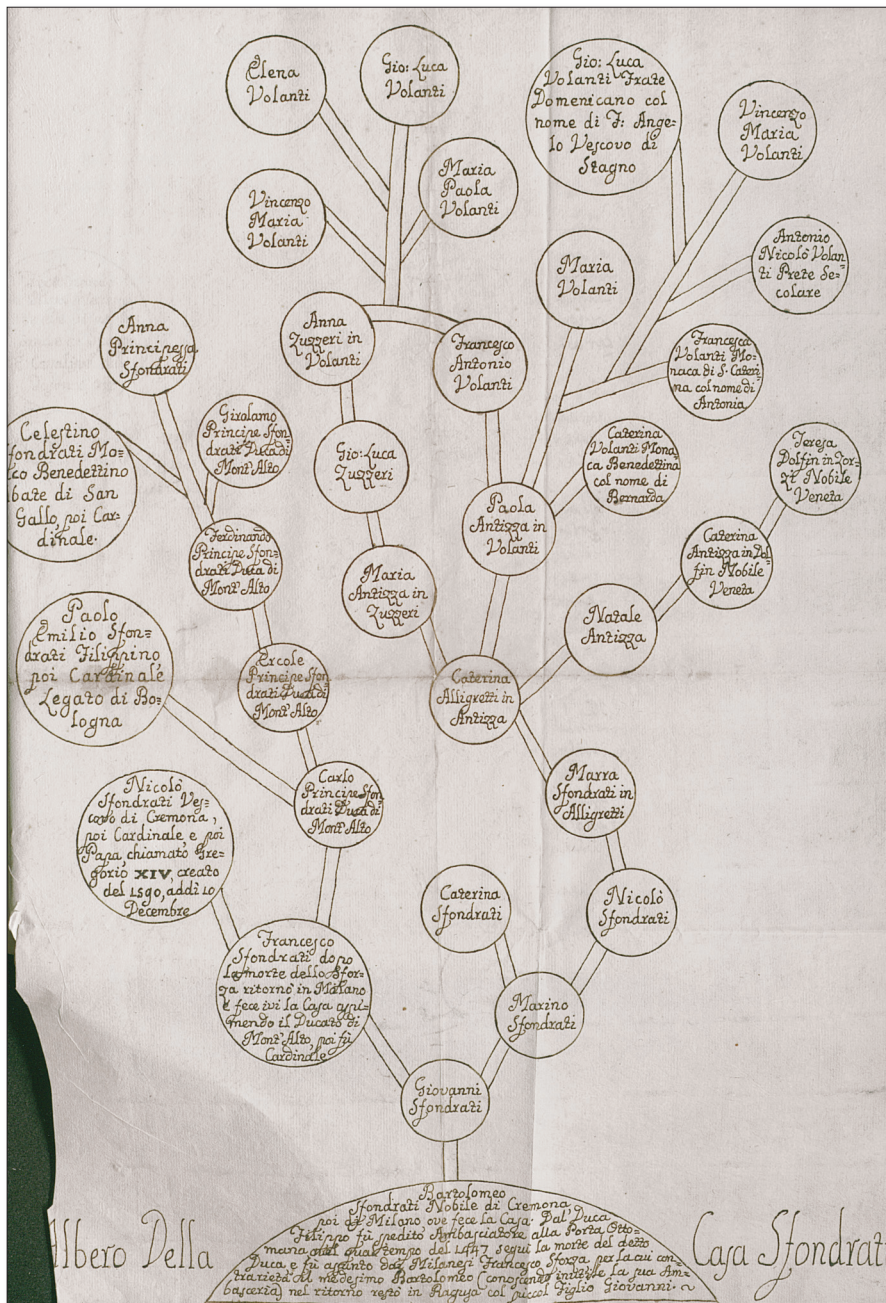 Elena
Volanti
Gio: Luca
Volanti
Gio: Luca
Volanti Frate
Domenicano col
nome di F: Ange-
lo Vescovo di
Stagno
Vincenzo
Maria
Volanti
Vincenzo
Maria
Volanti
Maria
Paola
Volanti
Maria
Volanti
Antonio
Nicolò Volan-
ti Prete Se-
colare
Anna
Principessa
Sfondrati
Anna
Zuzzeri in
Volanti
Francesco
Antonio
Volanti
Francesca
Volanti Mo-
naca di S. Cateri-
na col nome di
Antonia
Celestino
Sfondrati Mo-
co Benedettino
bate di San
Gallo, poi Car-
dinale.
Girolamo
Principe Sfon-
drati Duca di
Mont'Alto
Gio: Luca
Zuzzeri
Caterina
Volanti Mona-
ca Benedettina
col nome di
Bernarda
Teresa
Dolfin in Zor-
zi Nobile
Veneta
Ferdinando
Principe Sfon-
drati Duca di
Mont'Alto
Paola
Antizza in
Volanti
Caterina
Antizza in Dol-
fin Nobile
Veneta
Maria
Antizza in
Zuzzeri
Natale
Antizza
Paolo
Emilio Sfon-
drati Filippino
poi Cardinale
Legato di Bo-
logna
Ercole
Principe Sfon-
drati Duca di
Mont'Alto
Caterina
Alligretti in
Antizza
Nicolò
Sfondrati Ves-
covo di Cremona,
poi Cardinale, e poi
Papa, chiamato Gre-
gorio XIV, creato
del 1590, addì 10
Decembre
Carlo
Principe Sfon-
drati Duca di
Mont'Alto
Marra
Sfondrati in
Alligretti
Caterina
Sfondrati
Nicolò
Sfondrati
Francesco
Sfondrati dopo
la morte dello Sfor-
za ritornò in Milano
e fece ivi la Casa
mendo il Ducato di
Mont'Alto, poi fù
Cardinale
Marino
Sfondrati
Giovanni
Sfondrati
Bartolomeo
Sfondrati Nobile di Cremona,
poi di Milano ove fece la Casa. Dal Duca
Filippo fù spedito Ambasciatore alla Porta Otto-
mana nel qual tempo del 1447 seguì la morte del detto
Duca e fù assunto dai Milanesi Francesco Sforza per la cui con-
trarietà il medesimo Bartolomeo (conoscendo inutile la sua Am-
basceria) nel ritorno restò in Ragusa col piccol Figlio Giovanni.
Albero Della Casa Sfondrati